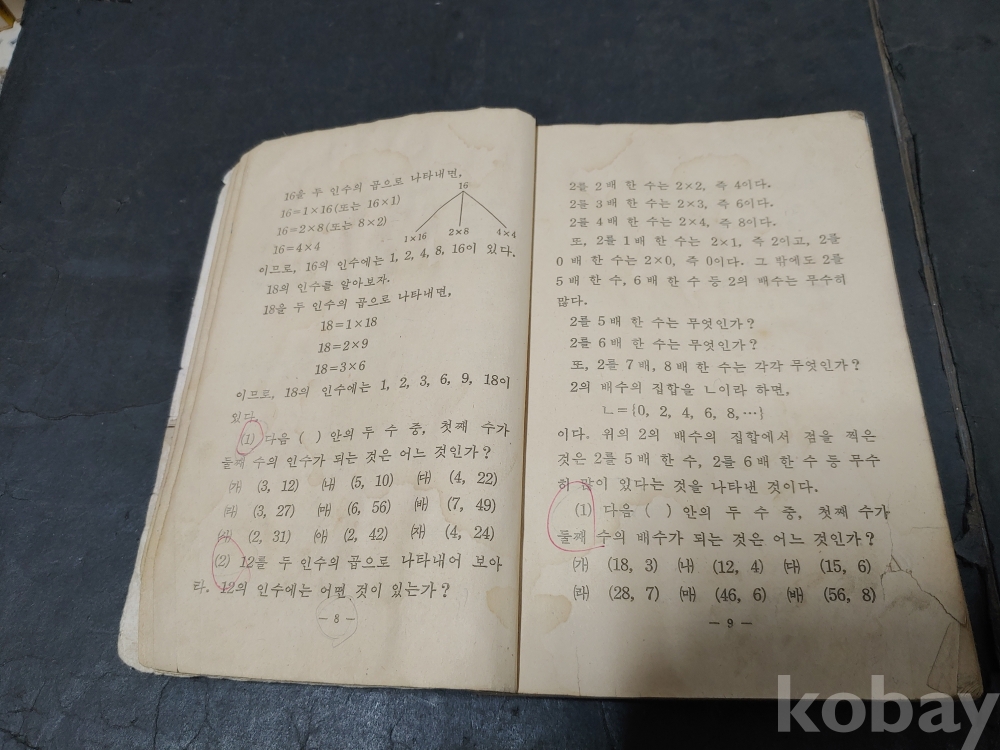 16을 두 인수의 곱으로 나타내면,
16=1×16(또는 16×1)
16=2×8(또는 8×2)
16=4×4
16
1×16 2×8 4×4
이므로, 16의 인수에는 1, 2, 4, 8, 16이 있다.
18의 인수를 알아보자.
18을 두 인수의 곱으로 나타내면,
18=1×18
18=2×9
18=3×6
이므로, 18의 인수에는 1, 2, 3, 6, 9, 18이
있다.
(1) 다음 ( ) 안의 두 수 중, 첫째 수가
둘째 수의 인수가 되는 것은 어느 것인가?
㈎ (3, 12) ㈏ (5, 10) ㈐ (4, 22)
㈑ (3, 27) ㈒ (6, 56) ㈓ (7, 49)
㈔ (2, 31) ㈕ (2, 42) ㈖ (4, 24)
(2) 12를 두 인수의 곱으로 나타내어 보아
라. 12의 인수에는 어떤 것이 있는가?
— 8 —
2를 2배 한 수는 2×2, 즉 4이다.
2를 3배 한 수는 2×3, 즉 6이다.
2를 4배 한 수는 2×4, 즉 8이다.
또, 2를 1배 한 수는 2×1, 즉 2이고, 2를
0배 한 수는 2×0, 즉 0이다. 그 밖에도 2를
5배 한 수, 6배 한 수 등 2의 배수는 무수히
많다.
2를 5배 한 수는 무엇인가?
2를 6배 한 수는 무엇인가?
또, 2를 7배, 8배 한 수는 각각 무엇인가?
2의 배수의 집합을 ㄴ이라 하면,
ㄴ={0, 2, 4, 6, 8, …}
이다. 위의 2의 배수의 집합에서 점을 찍은
것은 2를 5배 한 수, 2를 6배 한 수 등 무수
히 많이 있다는 것을 나타낸 것이다.
(1) 다음 ( ) 안의 두 수 중, 첫째 수가
둘째 수의 배수가 되는 것은 어느 것인가?
㈎ (18, 3) ㈏ (12, 4) ㈐ (15, 6)
㈑ (28, 7) ㈒ (46, 6) ㈓ (56, 8)
— 9 —
kobay